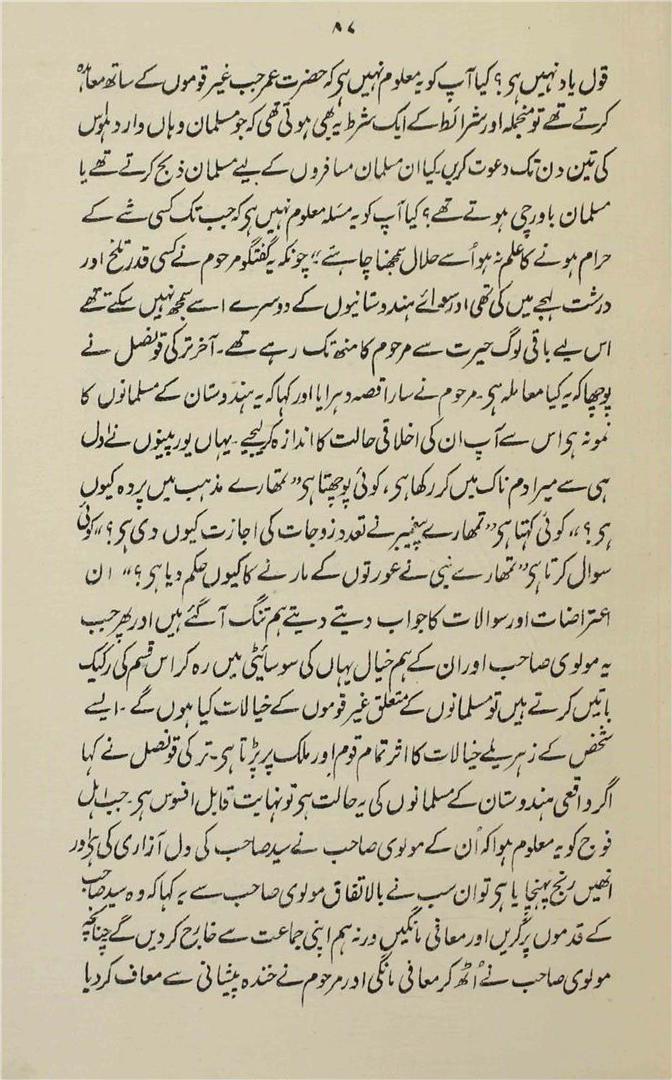 ۸۷
قول یاد نہیں ہی؟ کیا آپ کو یہ معلوم نہیں ہی کہ حضرت عمر جب غیر قوموں کے ساتھ معاہدہ
کرتے تھے تو منجملہ اور شرائط کے ایک شرط یہ بھی ہوتی تھی کہ جو مسلمان وہاں وارد ہوں اس
کی تین دن تک دعوت کریں۔ کیا ان مسلمان مسافروں کے لیے مسلمان ذبح کرتے تھے یا
مسلمان باورچی ہوتے تھے؟ کیا آپ کو یہ مسئلہ معلوم نہیں ہی کہ جب تک کسی شے کے
حرام ہونے کا علم نہ ہو اُسے حلال سمجھنا چاہئے" چونکہ یہ گفتگو مرحوم نے کسی قدر تلخ اور
درشت لہجے میں کی تھی اور سوائے ہندوستانیوں کے دوسرے اسے سمجھ نہیں سکتے تھے
اس لیے باقی لوگ حیرت سے مرحوم کا منھ تک رہے تھے۔ آخر ترکی قونصل نے
پوچھا کہ یہ کیا معاملہ ہی۔ مرحوم نے سارا قصہ دہرایا اور کہا کہ یہ ہندوستان کے مسلمانوں کا
نمونہ ہی اس سے آپ ان کی اخلاقی حالت کا اندازہ کر لیجیے۔ یہاں یورپینوں نے اول
ہی سے میرا دم ناک میں کر رکھا ہی، کوئی پوچھتا ہی "تمھارے مذہب میں پردہ کیوں
ہی؟" کوئی کہتا ہی "تمھارے پیغمبر نے تعدد زوجات کی اجازت کیوں دی ہی؟" کوئی
سوال کرتا ہی "تمھارے نبی نے عورتوں کے مارنے کا کیوں حکم دیا ہی؟" ان
اعتراضات اور سوالات کا جواب دیتے دیتے ہم تنگ آ گئے ہیں اور پھر جب
یہ مولوی صاحب اور ان کے ہم خیال یہاں کی سوسائیٹی میں رہ کر اس قسم کی رکیک
باتیں کرتے ہیں تو مسلمانوں کے متعلق غیر قوموں کے خیالات کیا ہوں گے۔ ایسے
شخص کے زہریلے خیالات کا اثر تمام قوم اور ملک پر پڑتا ہی۔ ترکی قونصل نے کہا
اگر واقعی ہندوستان کے مسلمانوں کی یہ حالت ہی تو نہایت قابل افسوس ہی۔ جب اہل
فوج کو یہ معلوم ہوا کہ اُن کے مولوی صاحب نے سید صاحب کی دل آزاری کی ہی اور
انھیں رنج پہنچایا ہی تو ان سب نے بالاتفاق مولوی صاحب سے یہ کہا کہ وہ سید صاحب
کے قدموں پر گریں اور معافی مانگیں ورنہ ہم اپنی جماعت سے خارج کر دیں گے چنانچہ
مولوی صاحب نے اُٹھ کر معافی مانگی اور مرحوم نے خندہ پیشانی سے معاف کر دیا